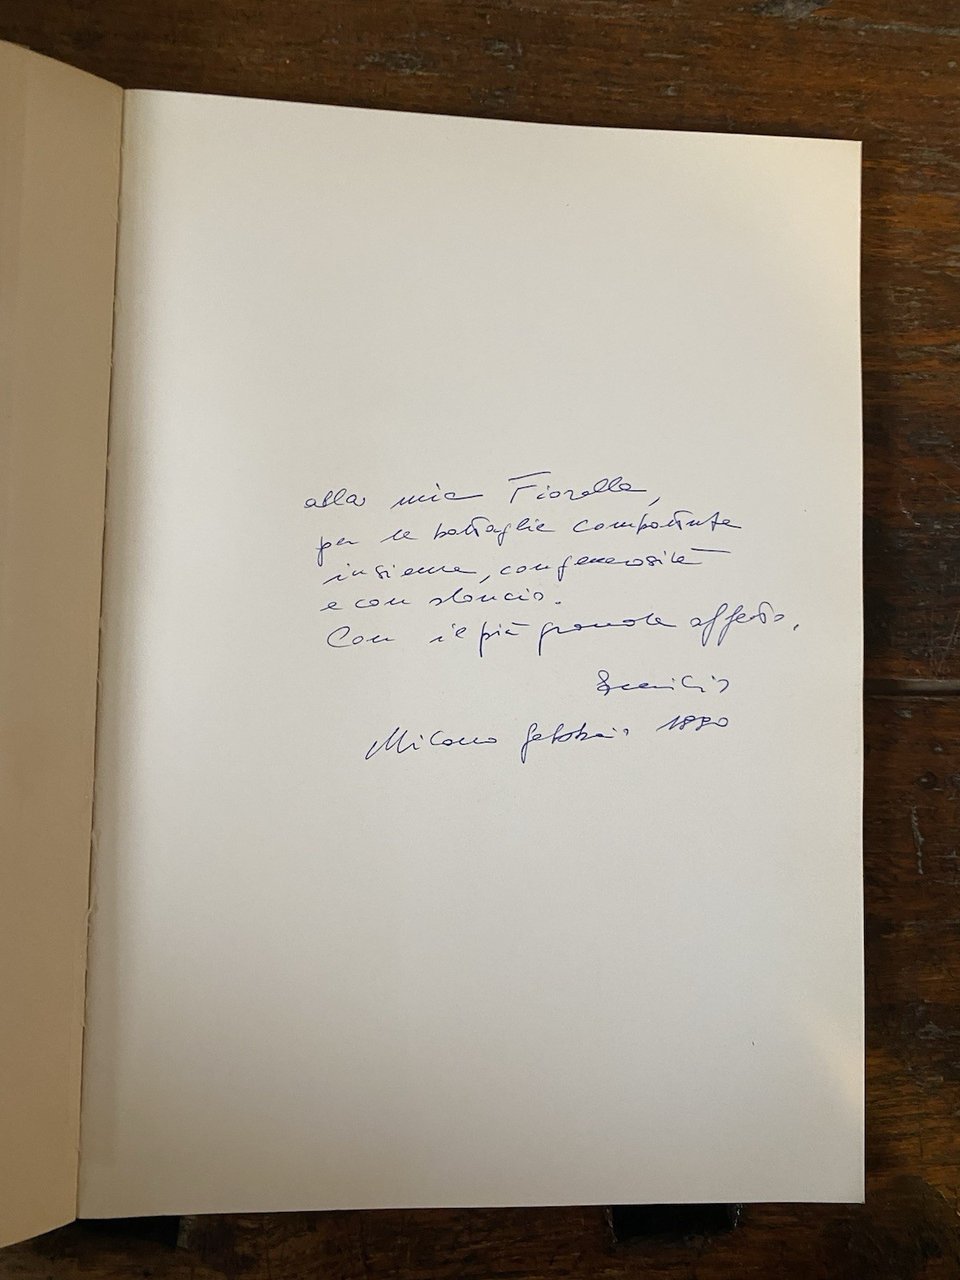 alla mia Fiorella,
per le battaglie combattute
insieme, con generosità
e con slancio.
Con il più grande affetto,
Milano febbraio